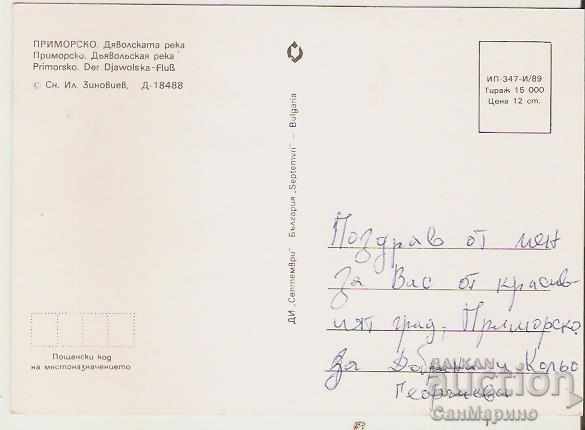 ПРИМОРСКО. Дяволската река
Приморско. Дьявольская река
Primorsko. Der Djawolska-Fluß
© Сн. Ил. Зиновиев, Д-18488
ИП-347-И/89
Тираж 15 000
Цена 12 ст.
ДИ „Септември" България „Septemvri" – Bulgaria
Поздрав от мен
за Вас от красив-
ият град, Приморско
За и Кольо
Георгиеви
Пощенски код
на местоназначението
BALKAN
auction
СанМарино